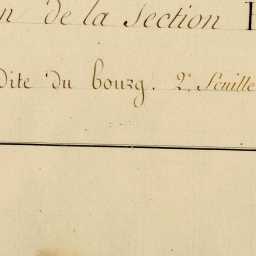 n de la Section
Dite du bourg. 2e feuille